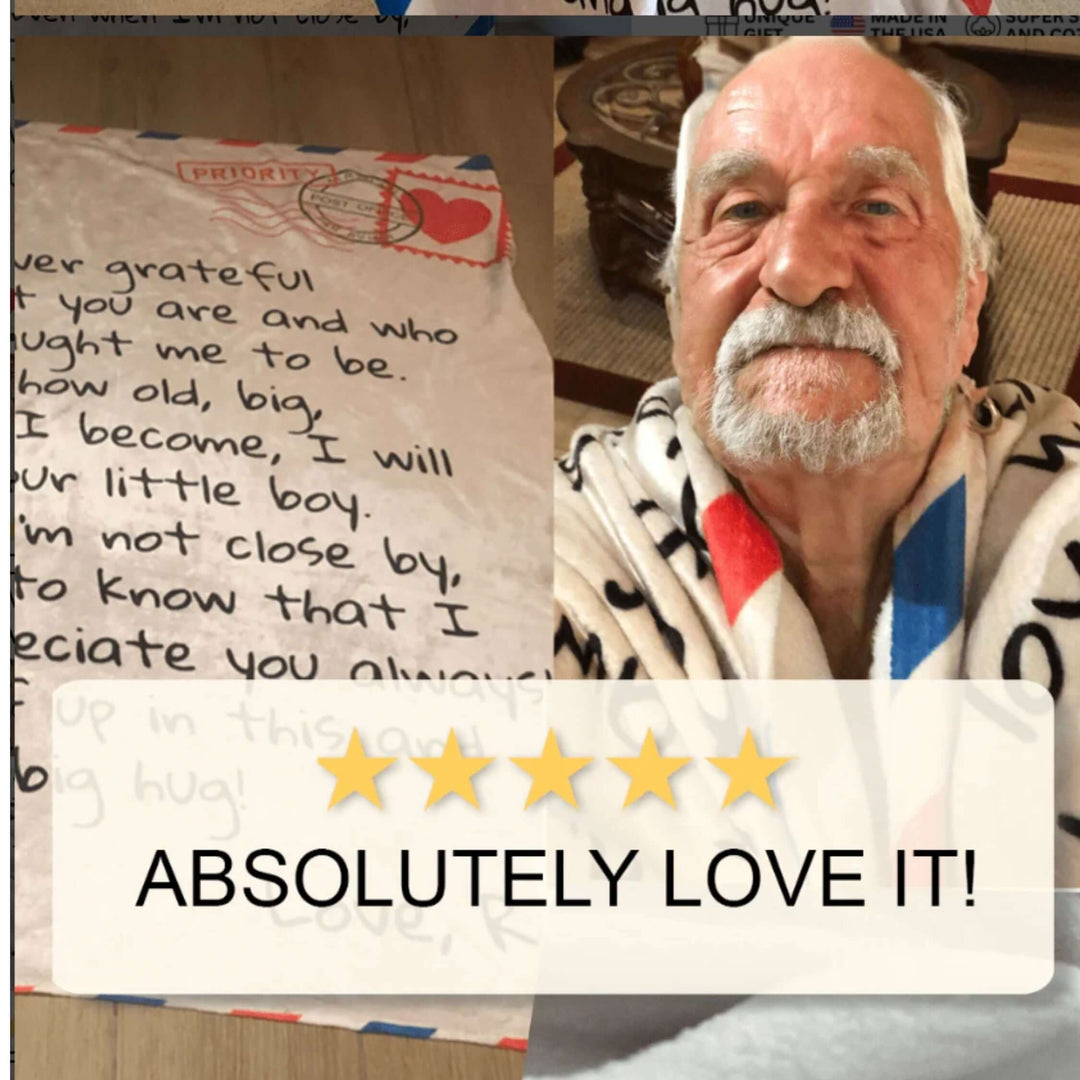 and a hug!
even when I'm not close by,
UNIQUE GIFT
MADE IN THE USA
PRIORITY
POST OFFICE
grateful
you are and who
me to be.
how old, big,
I become, I will
little boy.
I'm not close by,
to know that I
you always!
up in this and
big hug!
Love, R
ABSOLUTELY LOVE IT!